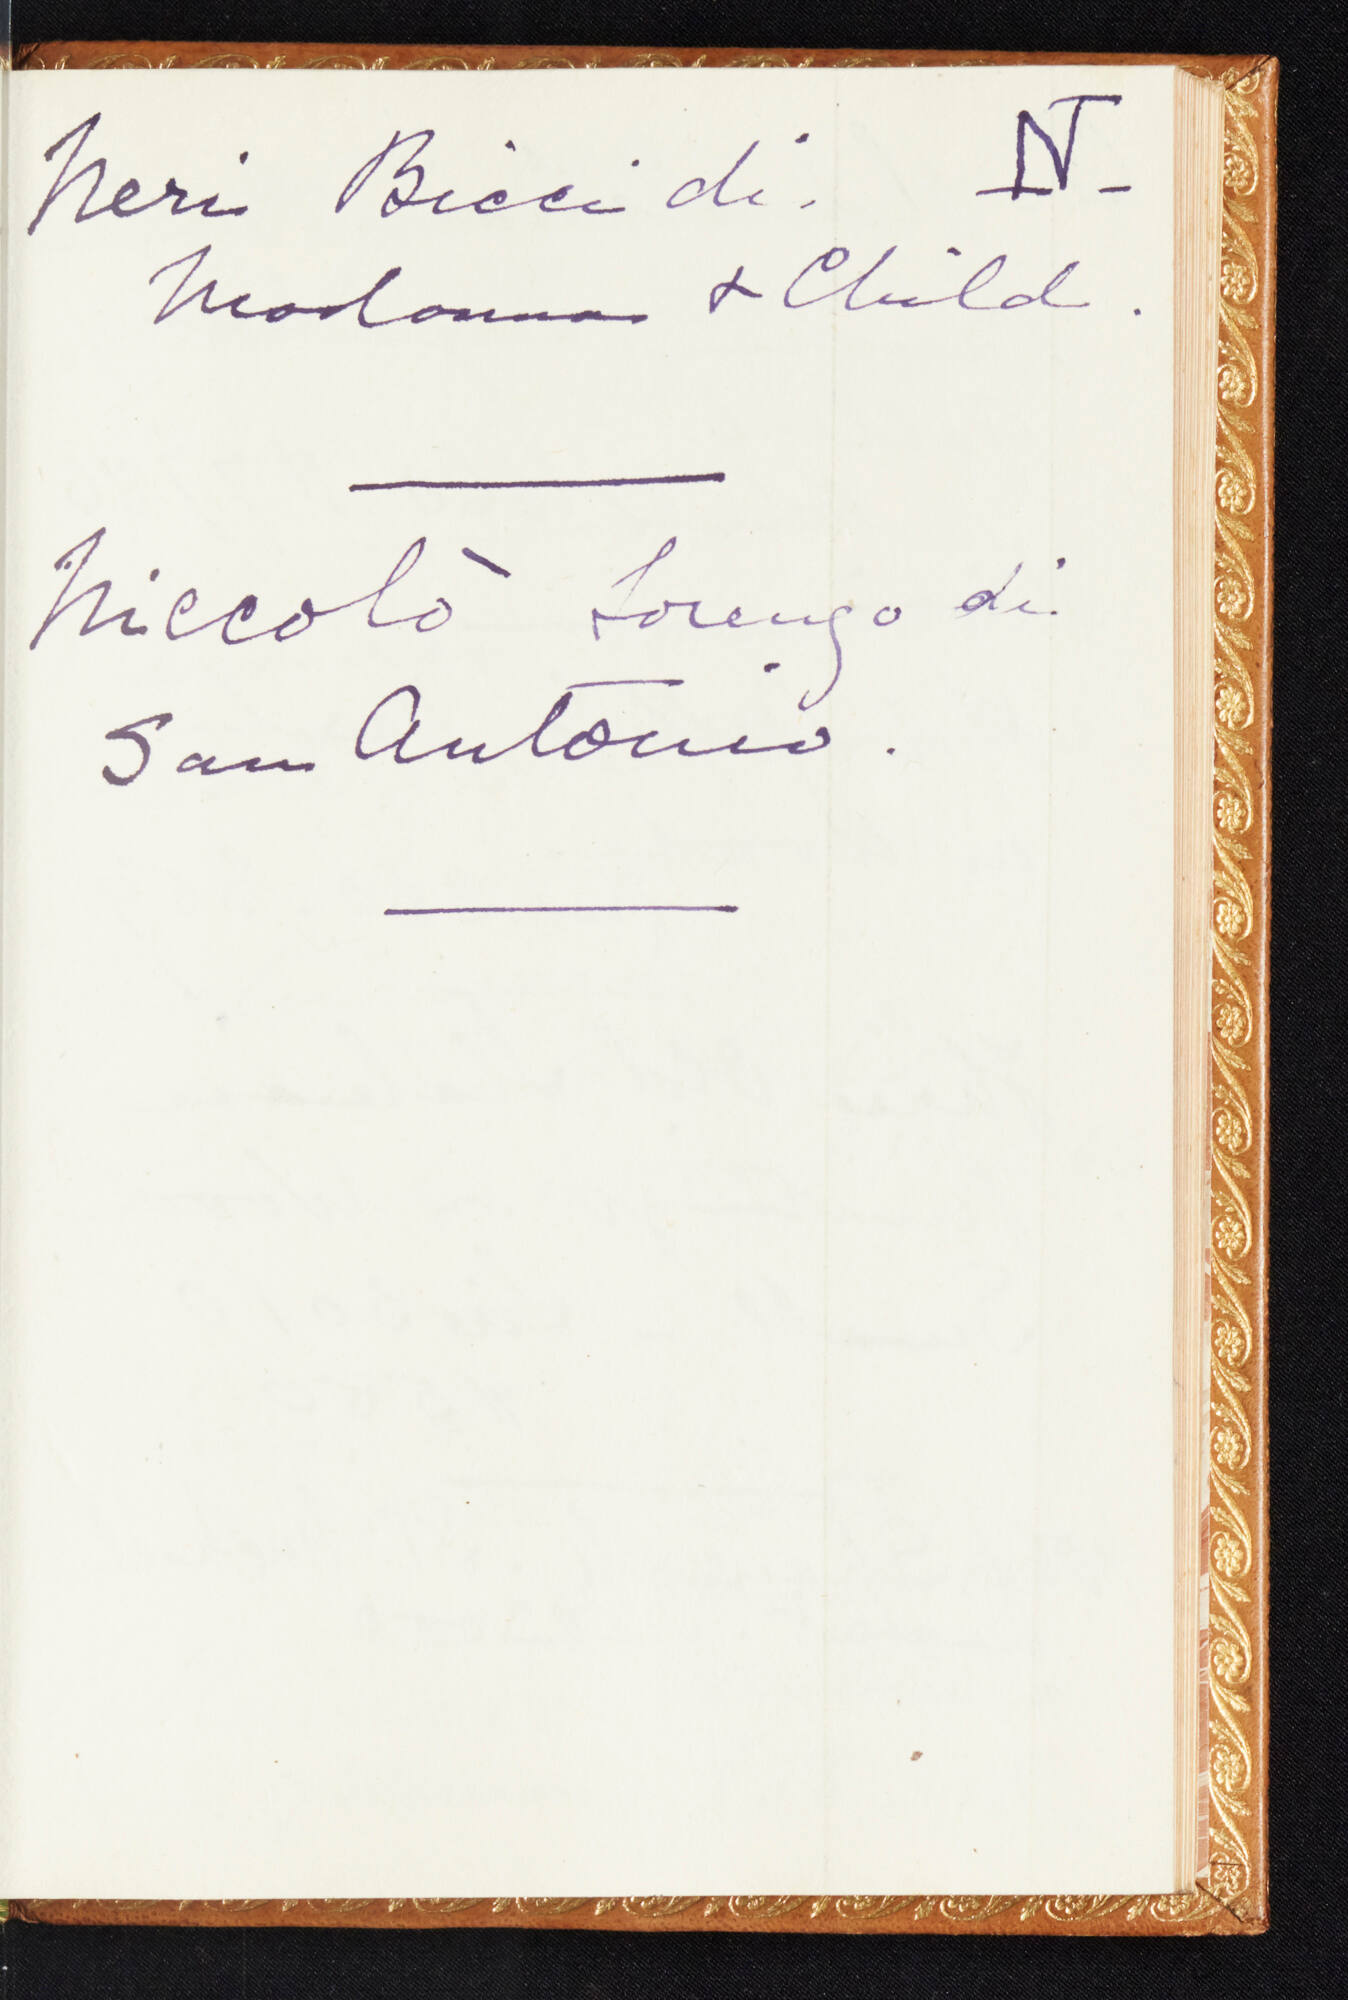 Neri Bicci di. N
Madonna & Child.
Niccolò Lorenzo di
San Antonio.